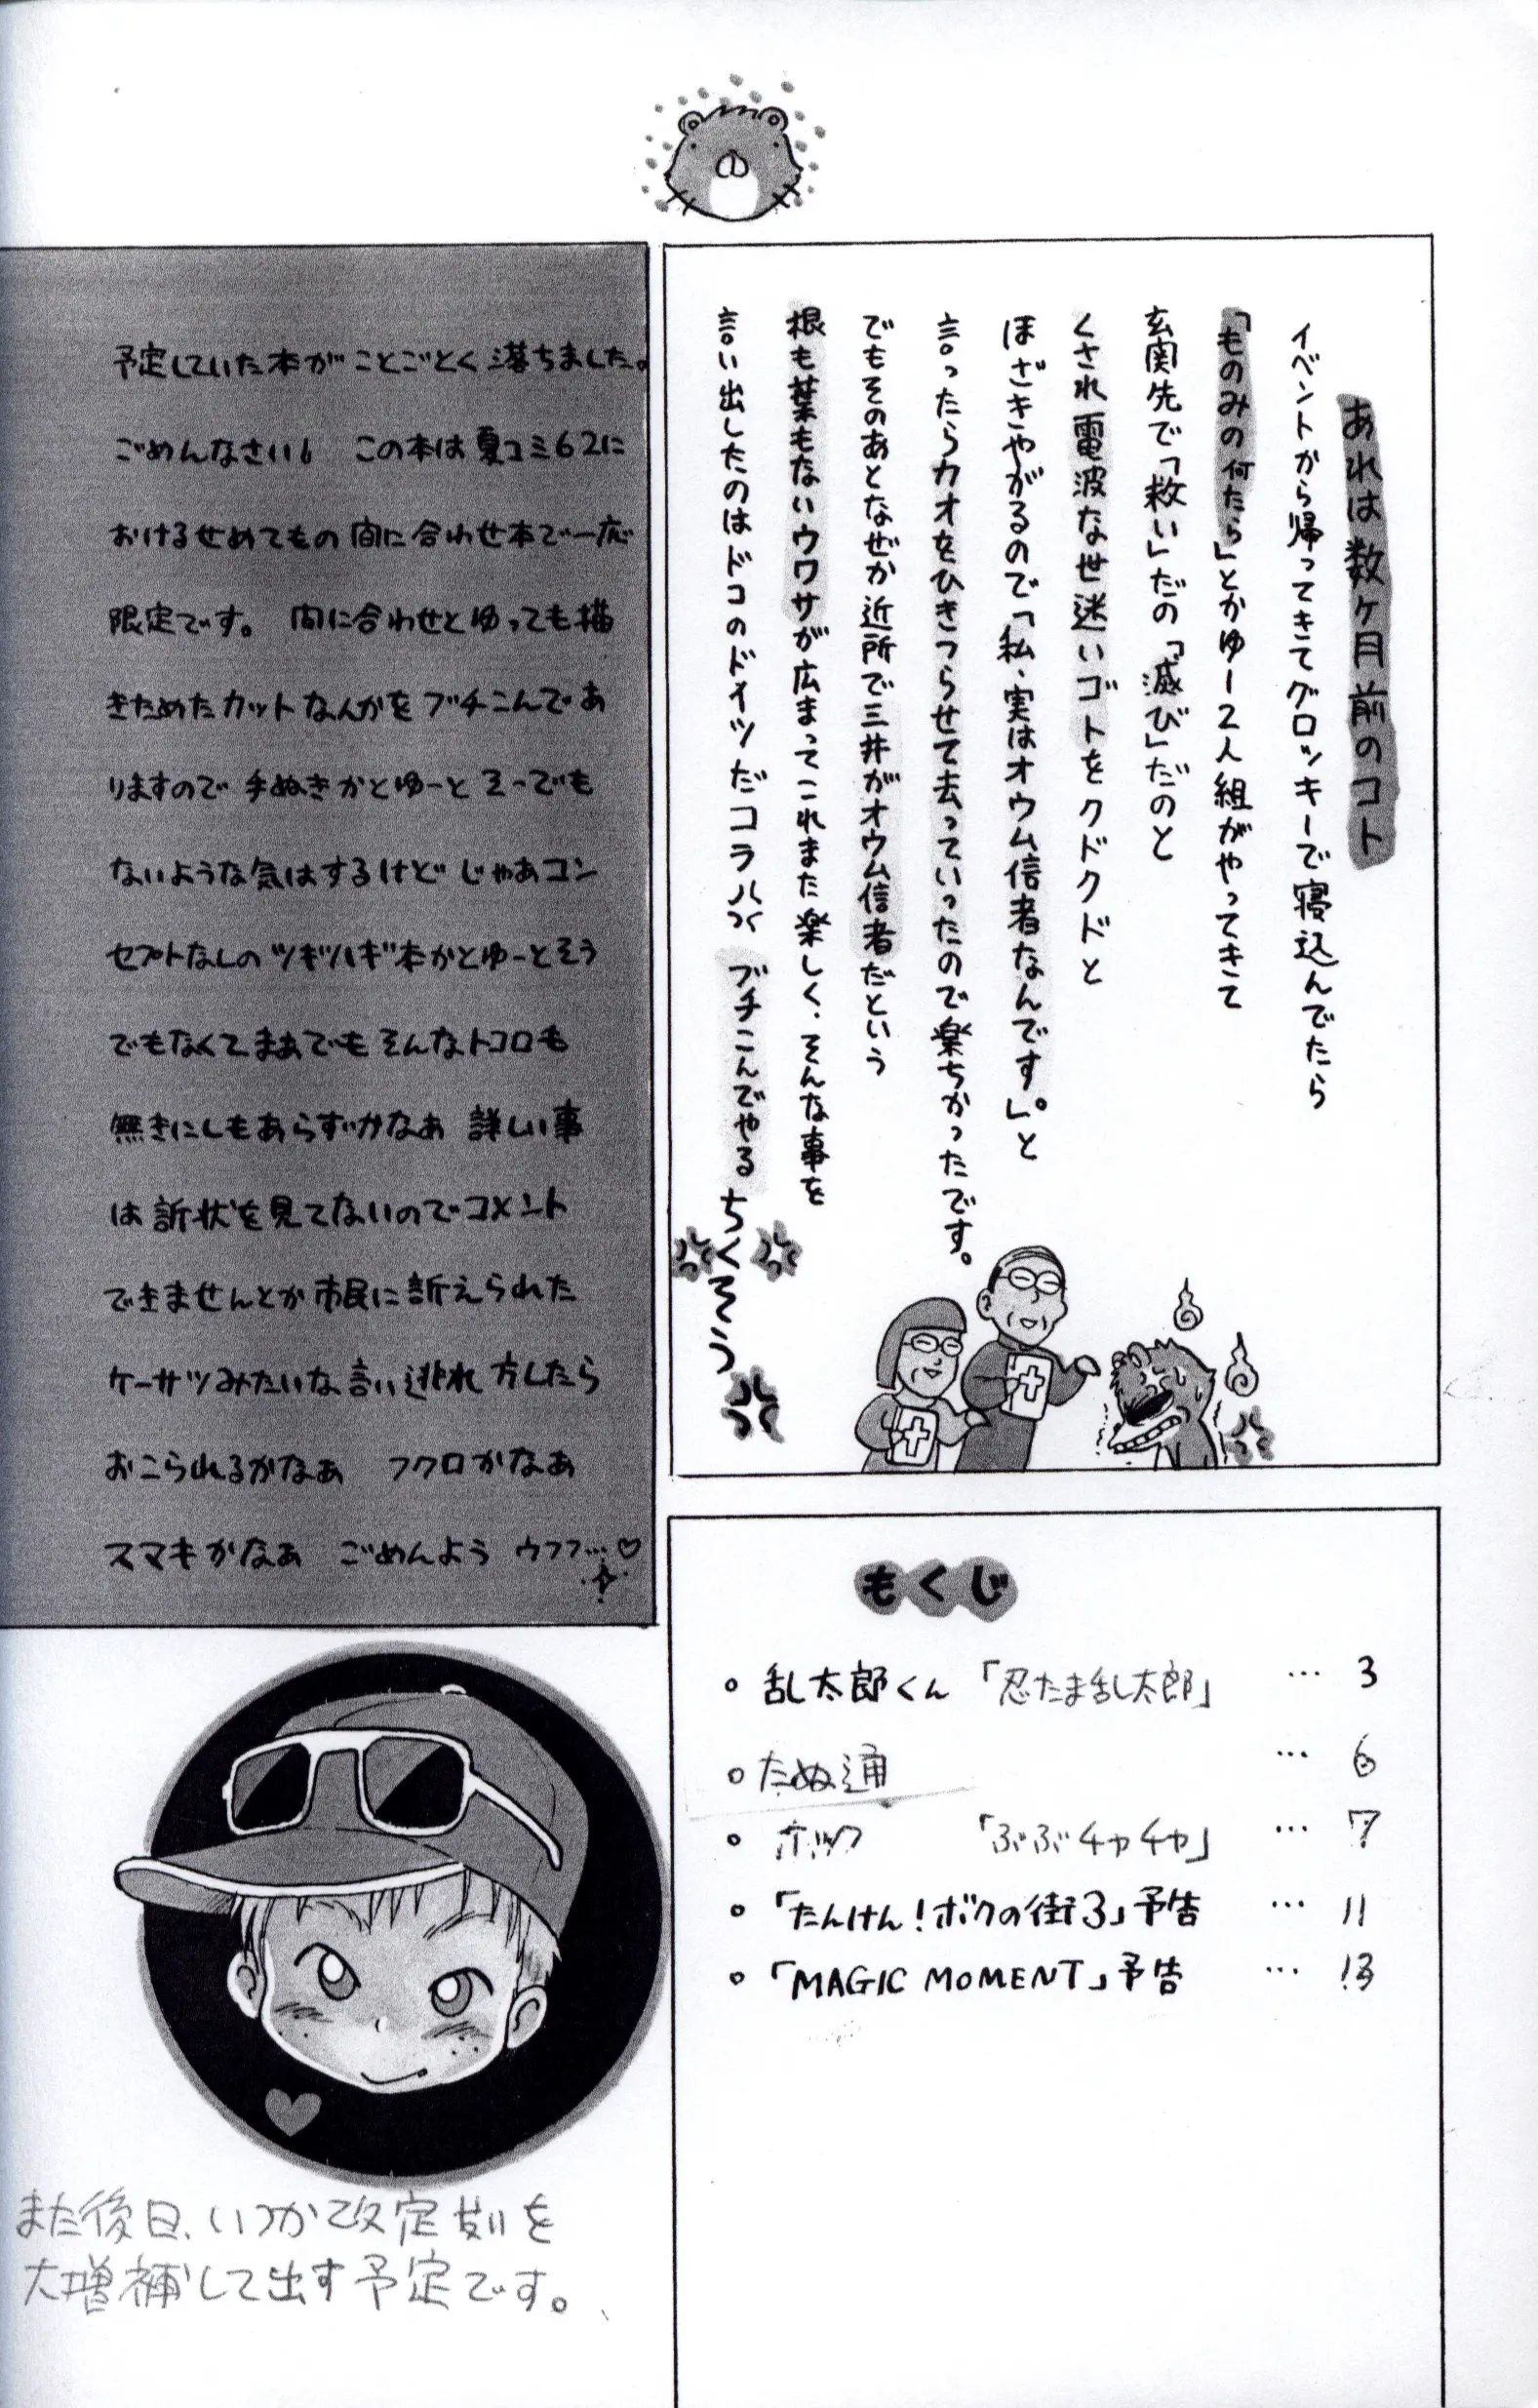 あれは数ヶ月前のコト
イベントから帰ってきてグロッキーで寝込んでたら
「ものみの何たら」とかゆー2人組がやってきて
玄関先で「救い」だの「滅び」だのと
くされ電波な世迷いゴトをクドクドと
ほざきやがるので「私、実はオウム信者なんです。」と
言ったらカオをひきつらせて去っていったので楽ちかったです。
でもそのあとなぜか近所で三井がオウム信者だという
根も葉もないウワサが広まってこれまた楽しく、そんな事を
言い出したのはドコのドイツだコラ ブチこんでやる ちくそう
予定していた本がことごとく落ちました。
ごめんなさい この本は夏コミ62に
おけるせめてもの間に合わせ本で一応
限定です。 間に合わせとゆっても描
きためたカットなんかをブチこんであ
りますので手ぬきかとゆーとそーでも
ないような気はするけど じゃあコン
セプトなしのツギハギ本かとゆーとそう
でもなくてまぁでもそんなトコロも
無きにしもあらずかなぁ 詳しい事
は訴状を見てないのでコメント
できませんとか市民に訴えられた
ケーサツみたいな言い逃れ方したら
おこられるかなぁ フクロかなぁ
スマキかなぁ ごめんよう ウフフ…♡
もくじ
○ 乱太郎くん「忍たま乱太郎」 … 3
○ たぬ通 … 6
○ ホック 「ぶぶチャチャ」 … 7
○ 「たんけん!ボクの街3」予告 … 11
○ 「MAGIC MOMENT」予告 … 13
また後日、いつか改定刻を
大増補して出す予定です。